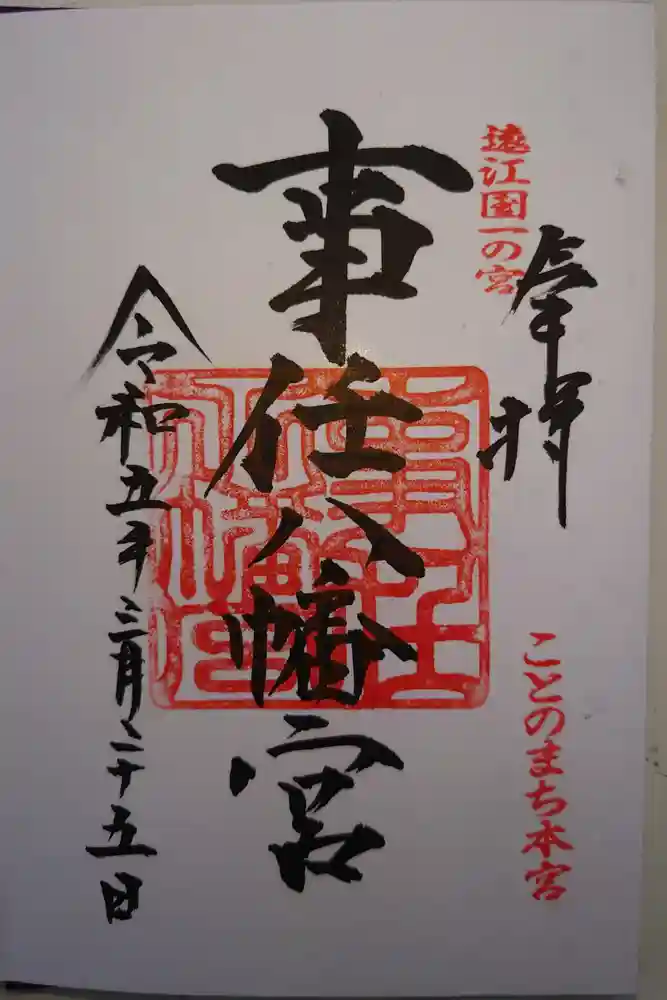 遠江國一の宮
奉拝
ことのまち本宮
事任八幡宮
令和五年三月二十五日